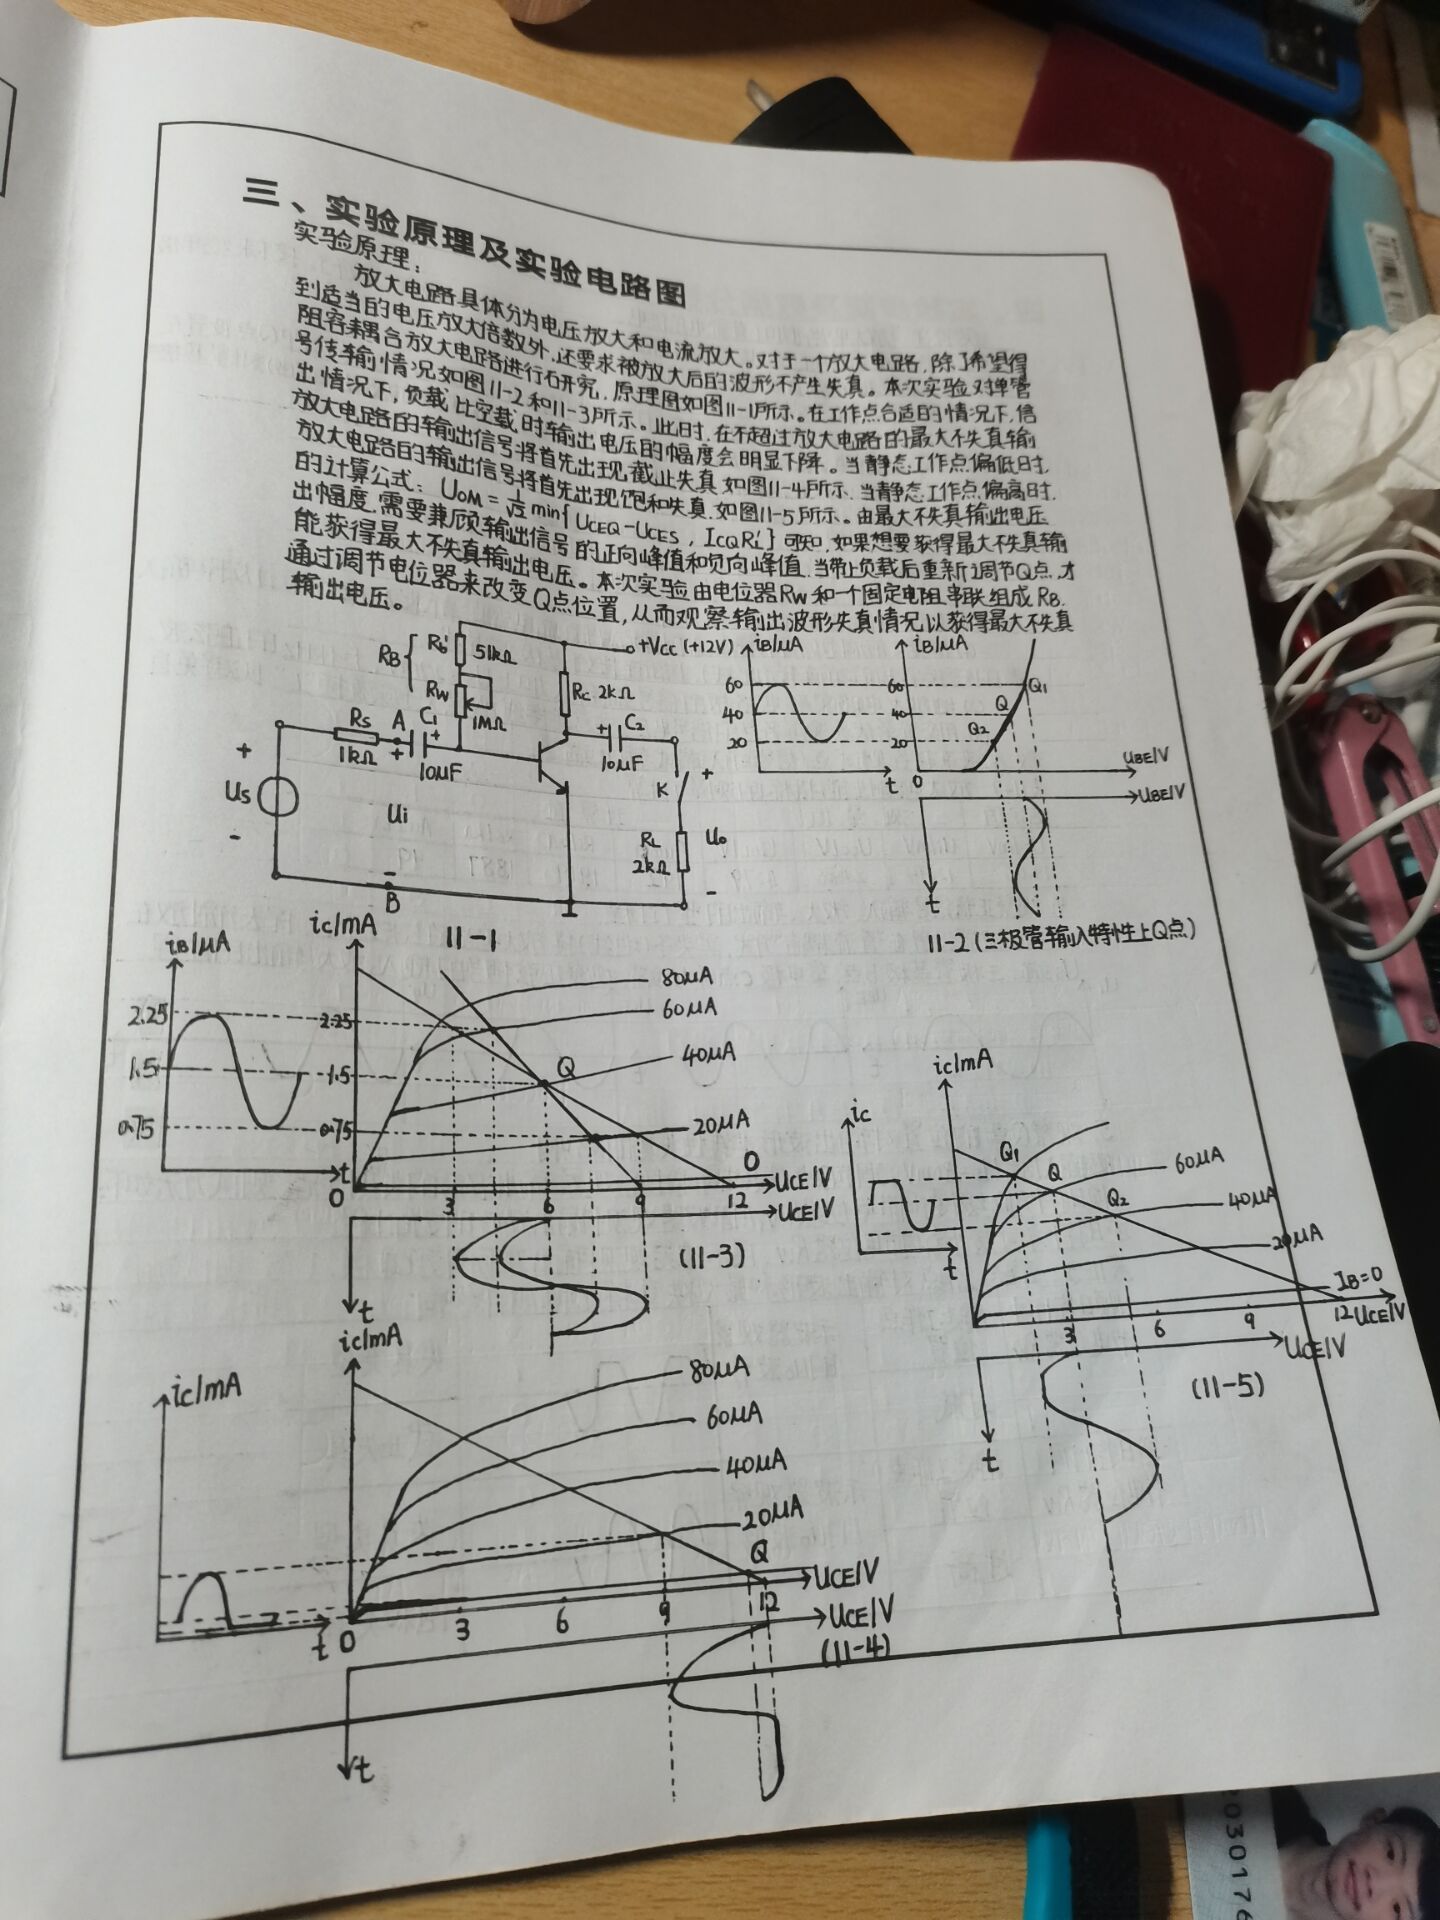 三、实验原理及实验电路图
实验原理:
放大电路具体分为电压放大和电流放大。对于一个放大电路,除了希望得
到适当的电压放大倍数外,还要求被放大后的波形不产生失真。本次实验对单管
阻容耦合放大电路进行研究,原理图如图11-1所示。在工作点合适的情况下,信
号传输情况如图11-2和11-3所示。此时,在不超过放大电路的最大不失真输
出情况下,负载比空载时输出电压的幅度会明显下降。当静态工作点偏低时,
放大电路的输出信号将首先出现截止失真,如图11-4所示,当静态工作点偏高时,
放大电路的输出信号将首先出现饱和失真,如图11-5所示。由最大不失真输出电压
的计算公式: UOM = 1/√2 min{UCEQ-UCES, ICQRL'} 可知,如果想要获得最大不失真输
出幅度,需要兼顾输出信号的正向峰值和负向峰值,当带上负载后重新调节Q点,才
能获得最大不失真输出电压。本次实验由电位器RW和一个固定电阻串联组成RB,
通过调节电位器来改变Q点位置,从而观察输出波形失真情况以获得最大不失真
输出电压。
RB Rb' 51kΩ
RW 1MΩ
RC 2kΩ
+VCC (+12V)
RS 1kΩ
A
C1 + 10μF
+ C2 10μF
+ US -
+ Ui -
B
K
RL 2kΩ
+ Uo -
11-1
iB/μA
60
40
20
t
iB/μA
60
40
20
0
Q1
Q
Q2
UBE/V
UBE/V
t
11-2 (三极管输入特性上Q点)
iB/μA
2.25
1.5
0.75
t
ic/mA
2.25
1.5
0.75
0
80μA
60μA
40μA
20μA
0
Q
3 6 9 12
UCE/V
UCE/V
t
(11-3)
ic
t
ic/mA
Q1
Q
Q2
60μA
40μA
20μA
IB=0
3 6 9 12 UCE/V
UCE/V
t
(11-5)
ic/mA
t
ic/mA
80μA
60μA
40μA
20μA
Q
0 3 6 9 12
UCE/V
UCE/V
(11-4)
t